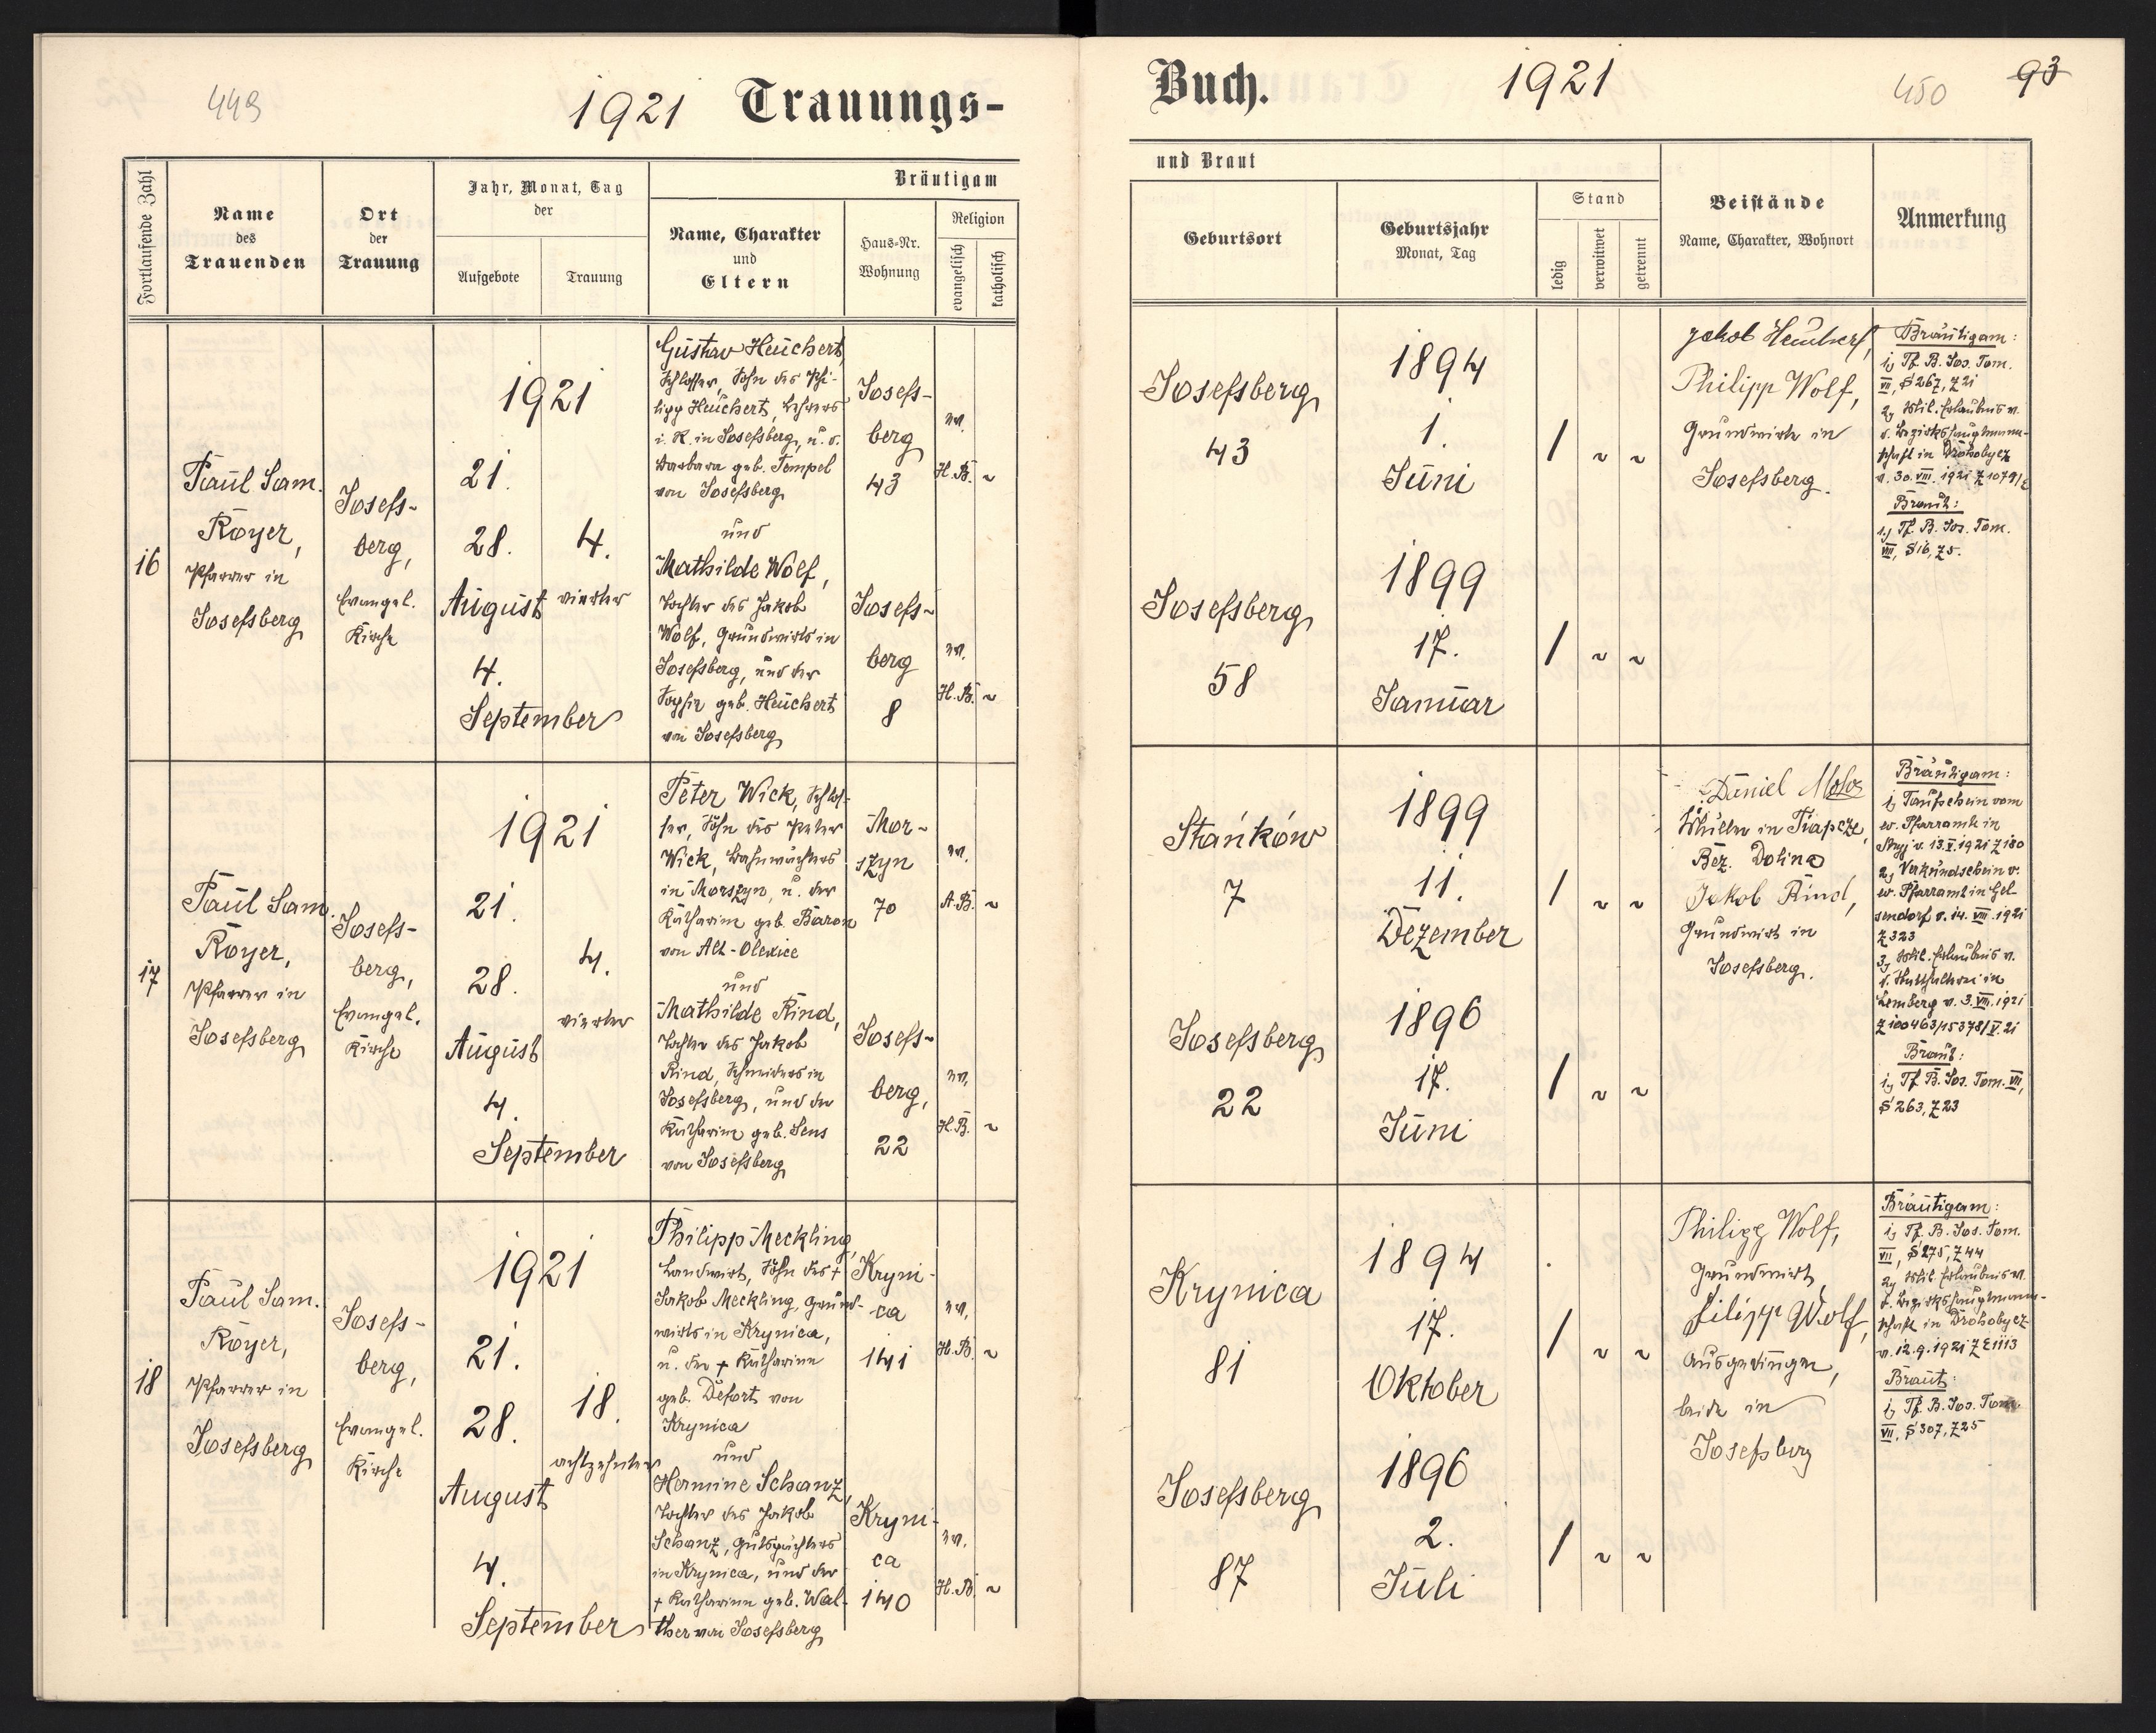 449
1921 Trauungs-
Fortlaufende Zahl
Name
des
Trauenden
Ort
der
Trauung
Jahr, Monat, Tag
der
Aufgebote
Trauung
Bräutigam
Name, Charakter
und
Eltern
Haus-Nr.
Wohnung
Religion
evangelisch
katholisch
16
Paul Sam.
Royer,
Pfarrer in
Josefsberg
Josefs-
berg,
Evangel.
Kirche
1921
21.
28.
August
4.
September
4.
vierter
Gustav Heuchert,
Schlosser, Sohn des Phi-
lipp Heuchert, Lehrers
i. R. in Josefsberg, u. d.
Barbara geb. Tempel
von Josefsberg
und
Mathilde Wolf,
Tochter des Jakob
Wolf, Grundwirts in
Josefsberg, und der
Sophie geb. Heuchert
von Josefsberg
Josefs-
berg
43
ev.
H.B. ~
Josefs-
berg
8
ev.
H.B. ~
17
Paul Sam.
Royer,
Pfarrer in
Josefsberg
Josefs-
berg,
Evangel.
Kirche
1921
21.
28.
August
4.
September
4.
vierter
Peter Wick, Schlos-
ser, Sohn des Peter
Wick, Bahnwächters
in Morszyn, u. der
Katharina geb. Baron
von Alt-Olexice
und
Mathilde Rind,
Tochter des Jakob
Rind, Schneiders in
Josefsberg, und der
Katharina geb. Sens
von Josefsberg
Mor-
szyn
70
ev.
A.B. ~
Josefs-
berg,
22
ev.
H.B. ~
18
Paul Sam.
Royer,
Pfarrer in
Josefsberg
Josefs-
berg,
Evangel.
Kirche
1921
21.
28.
August
4.
September
18.
achtzehnter
Philipp Meckling,
Landwirt, Sohn des +
Jakob Meckling, Grund-
wirts in Krynica,
u. der + Katharina
geb. Defort von
Krynica
und
Hermine Schanz,
Tochter des Jakob
Schanz, Gutspächters
in Krynica, und der
+ Katharina geb. Wal-
ther von Josefsberg
Kryni-
ca
141
ev.
H.B. ~
Kryni-
ca
140
ev.
H.B. ~
Buch. 1921
450 93
und Braut
Geburtsort
Geburtsjahr
Monat, Tag
Stand
ledig
verwitwet
getrennt
Beistände
Name, Charakter, Wohnort
Anmerkung
Josefsberg
43
1894
1.
Juni
/ ~ ~
Josefsberg
58
1899
17.
Januar
/ ~ ~
Jakob Heuchert,
Philipp Wolf,
Grundwirte in
Josefsberg.
Bräutigam:
1, Tf. B. Jos. Tom.
VII, S 267, Z 21
2, Mil. Erlaubnis v.
d. Bezirkshauptmann-
schaft in Drohobycz
v. 30. VIII. 1921 Z 1079/E
Braut:
1, Tf. B. Jos. Tom.
VIII, S 16, Z 5.
Stańków
7
1899
11.
Dezember
/ ~ ~
Josefsberg
22
1896
17.
Juni
/ ~ ~
Daniel
Müller in Tiapcze,
Bez. Dolina
Jakob Rind,
Grundwirt in
Josefsberg.
Bräutigam:
1, Taufschein vom
ev. Pfarramte in
Stryj v. 13. V. 1921 Z 180
2, Verkündschein v.
ev. Pfarramt in Gel-
sendorf v. 14. VIII. 1921
Z 323
3, Mil. Erlaubnis v.
d. Statthalterei in
Lemberg v. 3. VIII. 1921
Z 100463/15378/V. 21
Braut:
1, Tf. B. Jos. Tom. VII,
S 263, Z 23
Krynica
81
1894
17.
Oktober
/ ~ ~
Josefsberg
87
1896
2.
Juli
/ ~ ~
Philipp Wolf,
Grundwirt,
Filipp Wolf,
Ausgedinger,
beide in
Josefsberg
Bräutigam:
1, Tf. B. Jos. Tom.
VII, S 275, Z 44
2, Mil. Erlaubnis v.
d. Bezirkshauptmann-
schaft in Drohobycz
v. 12. 9. 1921 Z E 1113
Braut:
1, Tf. B. Jos. Tom.
VII, S 307, Z 25